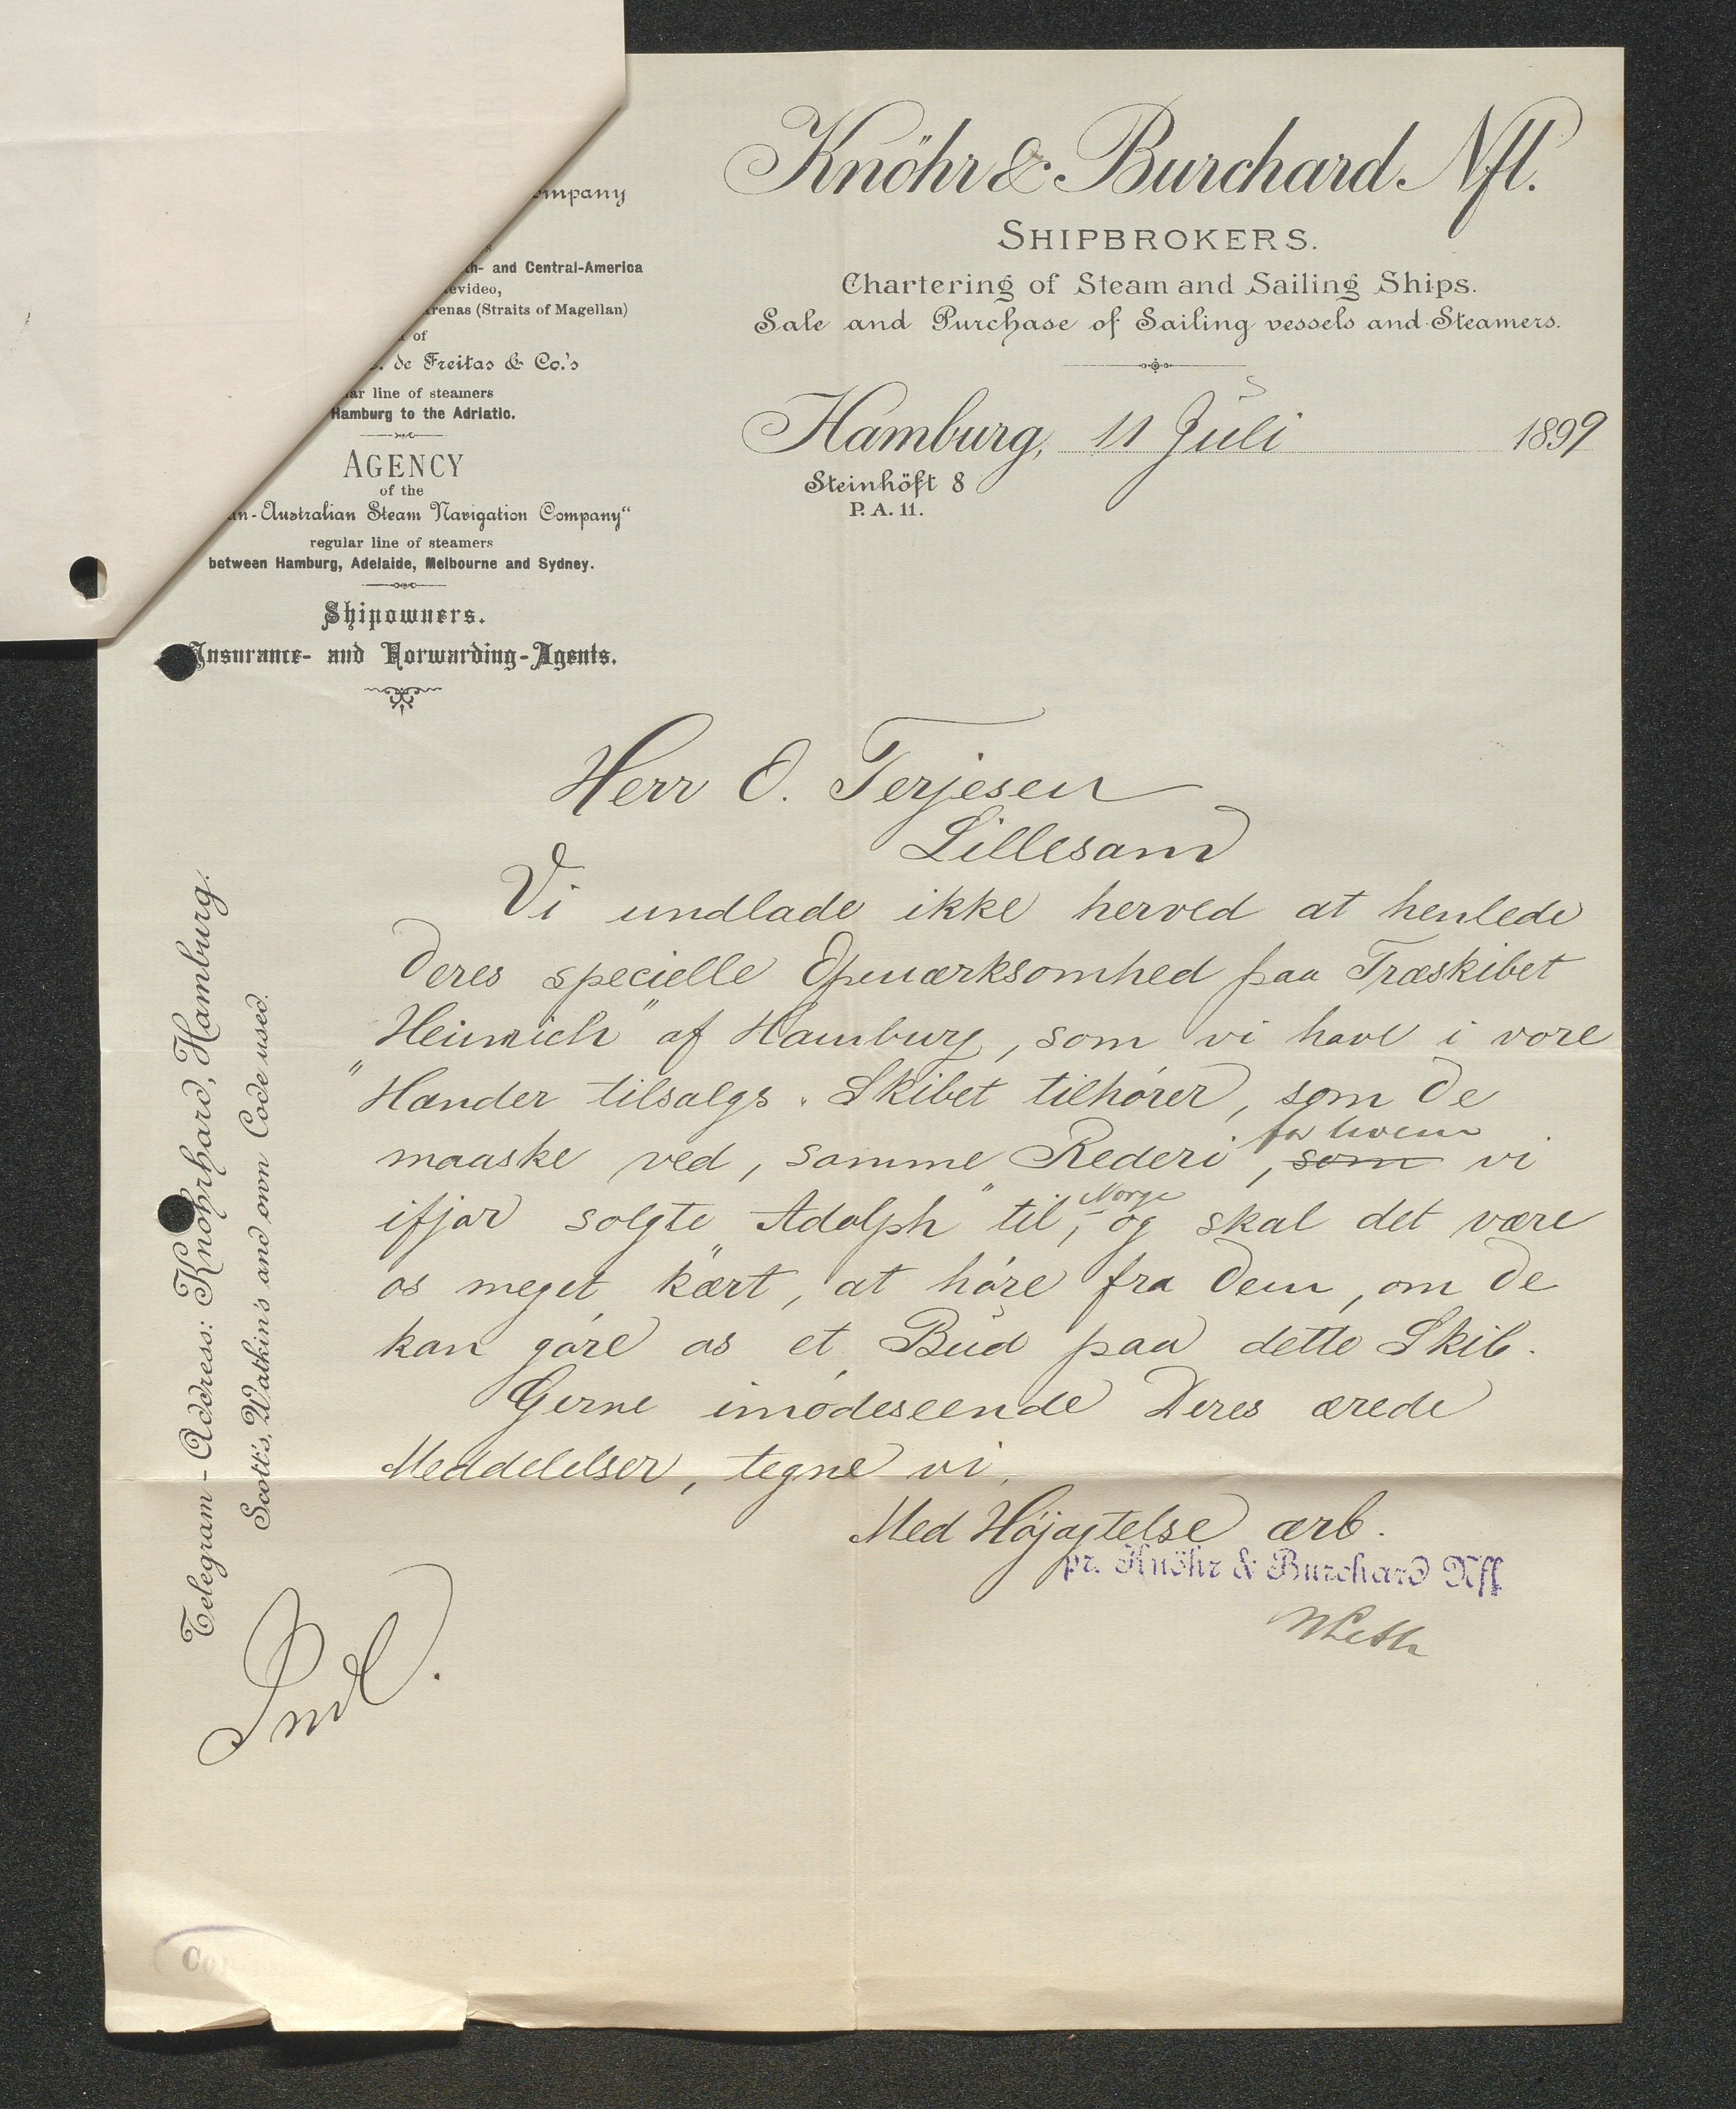 ompany
s
th- and Central-America
evideo,
renas (Straits of Magellan)
of
de Freitas & Co.'s
ar line of steamers
Hamburg to the Adriatic.
AGENCY
of the
an-Australian Steam Navigation Company“
regular line of steamers
between Hamburg, Adelaide, Melbourne and Sydney.
Shipowners.
Insurance- and Forwarding-Agents.
Knöhr & Burchard Nfl.
SHIPBROKERS.
Chartering of Steam and Sailing Ships.
Sale and Purchase of Sailing vessels and Steamers.
Hamburg, 11 Juli 1899
Steinhöft 8
P. A. 11.
Telegram-Address: Knöhrhard, Hamburg.
Scott's, Watkin's and own Code used.
Herr O. Terjesen
Lillesand
Vi undlade ikke herved at henlede
Deres specielle Opmærksomhed paa Træskibet
„Heinrich" af Hamburg, som vi have i vore
Hænder tilsalgs. Skibet tilhører, som De
maaske ved, samme Rederi, som for hvem vi
ifjor solgte „Adolph" til Norge, og skal det være
os meget kært, at høre fra Dem, om De
kan gøre os et Bud paa dette Skib.
Gerne imødeseende Deres ærede
Meddelelser, tegne vi,
Med Højagtelse ærb.
pr. Knöhr & Burchard Nfl